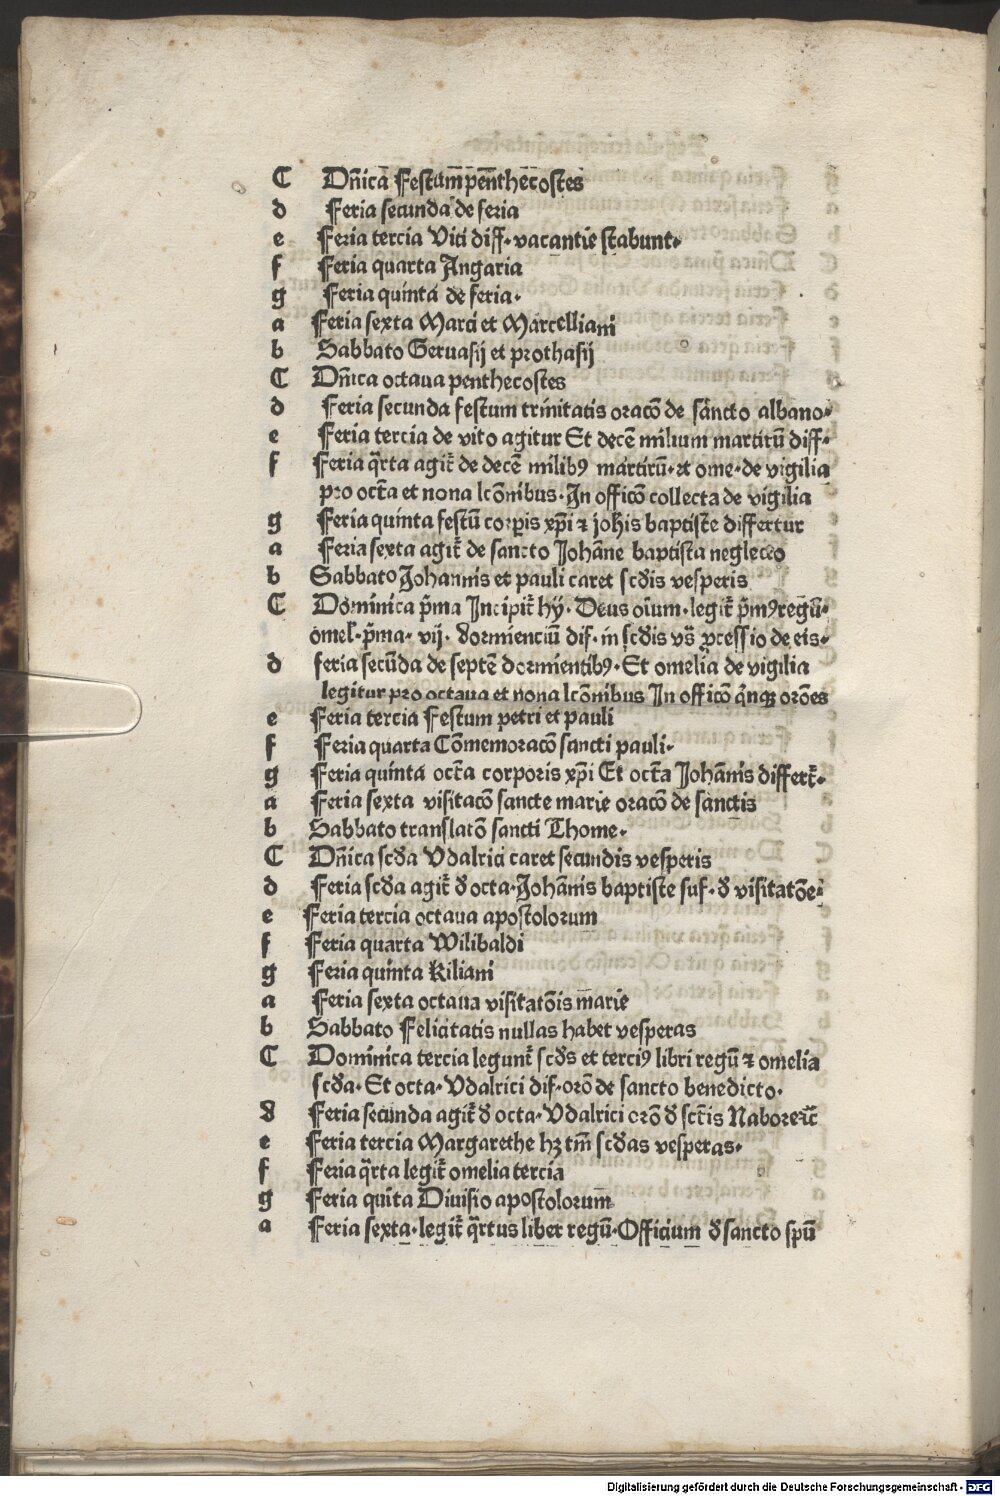 C Dn̄ica Festum pen̄thecostes
d Feria secunda de feria
e Feria tercia Viti diff· vacantie stabunt·
f Feria quarta Angaria
g Feria quinta de feria·
a Feria sexta Marci et Marcelliani
b Sabbato Geruasij et prothasij
C Dn̄ica octaua penthecostes
d Feria secunda festum trinitatis oracō de sancto albano·
e Feria tercia de vito agitur Et decē milium martirū diff·
f Feria q̄rta agit᷑ de decē milibꝰ martirū· et ome· de vigilia
pro octa et nona lcōnibus· In officō collecta de vigilia
g Feria quinta festū corꝑis xp̄i ⁊ joh̄is baptiste differtur
a Feria sexta agit᷑ de sancto Johāne baptista neglecto
b Sabbato Johannis et pauli caret scd̄is vesperis
C Dominica p̄ma Incipit᷑ hỹ· Deus oīum· legit᷑ p̄mꝰ regū·
omel̄· p̄ma· vij· dormienciū dif· in scd̄is vs̄ ꝓcessio de eis·
d feria secūda de septē dormientibꝰ· Et omelia de vigilia
legitur pro octaua et nona lcōnibus In officō q̄nqꝫ orōnes
e Feria tercia Festum petri et pauli
f Feria quarta Cōmemoracō sancti pauli·
g Feria quinta octa corporis xp̄i Et octa Johānis differt᷑·
a Feria sexta visitacō sancte marie oracō de sanctis
b Sabbato translatō sancti Thome·
C Dn̄ica scd̄a Vdalrici caret secundis vesperis
d Feria scd̄a agit᷑ d̄ octa· Johānis baptiste suf· d̄ visitatōe·
e Feria tercia octaua apostolorum
f Feria quarta Wilibaldi
g Feria quinta Kiliani
a Feria sexta octaua visitatōis marie
b Sabbato Felicitatis nullas habet vesperas
C Dominica tercia legunt᷑ scd̄s et terciꝰ libri regū ⁊ omelia
scd̄a· Et octa· Vdalrici dif· orō de sancto benedicto·
d Feria secunda agit᷑ d̄ octa· Vdalrici orō d̄ sctīs Nabore ⁊c̄
e Feria tercia Margarethe hꝫ tm̄ scd̄as vesperas·
f Feria q̄rta legit᷑ omelia tercia
g Feria quīta Diuisio apostolorum
a Feria sexta· legit᷑ q̄rtus liber regū· Officium d̄ sancto spū
Digitalisierung gefördert durch die Deutsche Forschungsgemeinschaft - DFG